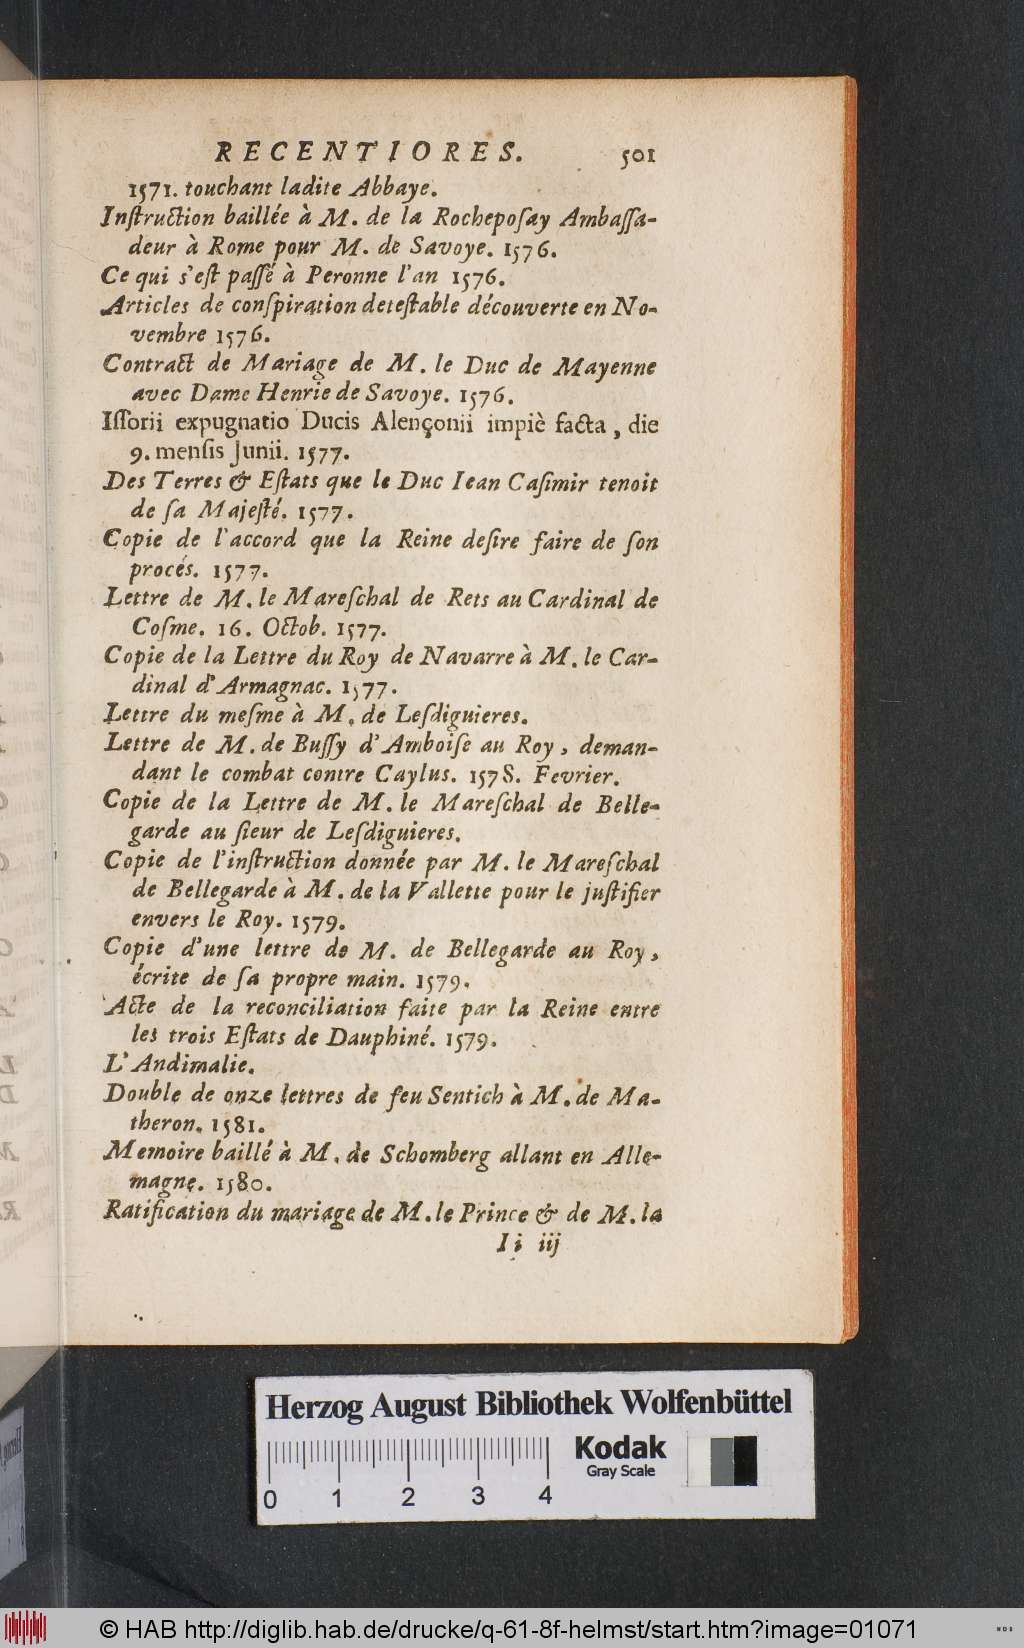 RECENTIORES. 501
1571. touchant ladite Abbaye.
Inſtruction baillée à M. de la Rochepoſay Ambaſſa-
deur à Rome pour M. de Savoye. 1576.
Ce qui s'eſt paſſé à Peronne l'an 1576.
Articles de conſpiration deteſtable découverte en No-
vembre 1576.
Contract de Mariage de M. le Duc de Mayenne
avec Dame Henrie de Savoye. 1576.
Iſſorii expugnatio Ducis Alençonii impiè facta, die
9. menſis Junii. 1577.
Des Terres & Eſtats que le Duc Iean Caſimir tenoit
de ſa Majeſté. 1577.
Copie de l'accord que la Reine deſire faire de ſon
procés. 1577.
Lettre de M. le Mareſchal de Rets au Cardinal de
Coſme. 16. Octob. 1577.
Copie de la Lettre du Roy de Navarre à M. le Car-
dinal d'Armagnac. 1577.
Lettre du meſme à M. de Leſdiguieres.
Lettre de M. de Buſſy d'Amboiſe au Roy, deman-
dant le combat contre Caylus. 1578. Fevrier.
Copie de la Lettre de M. le Mareſchal de Belle-
garde au ſieur de Leſdiguieres.
Copie de l'inſtruction donnée par M. le Mareſchal
de Bellegarde à M. de la Vallette pour le juſtifier
envers le Roy. 1579.
Copie d'une lettre de M. de Bellegarde au Roy,
écrite de ſa propre main. 1579.
Acte de la reconciliation faite par la Reine entre
les trois Eſtats de Dauphiné. 1579.
L'Andimalie.
Double de onze lettres de feu Sentich à M. de Ma-
theron. 1581.
Memoire baillé à M. de Schomberg allant en Alle-
magne. 1580.
Ratification du mariage de M. le Prince & de M. la
Ii iij
Herzog August Bibliothek Wolfenbüttel
Kodak
Gray Scale
0 1 2 3 4
© HAB http://diglib.hab.de/drucke/q-61-8f-helmst/start.htm?image=01071